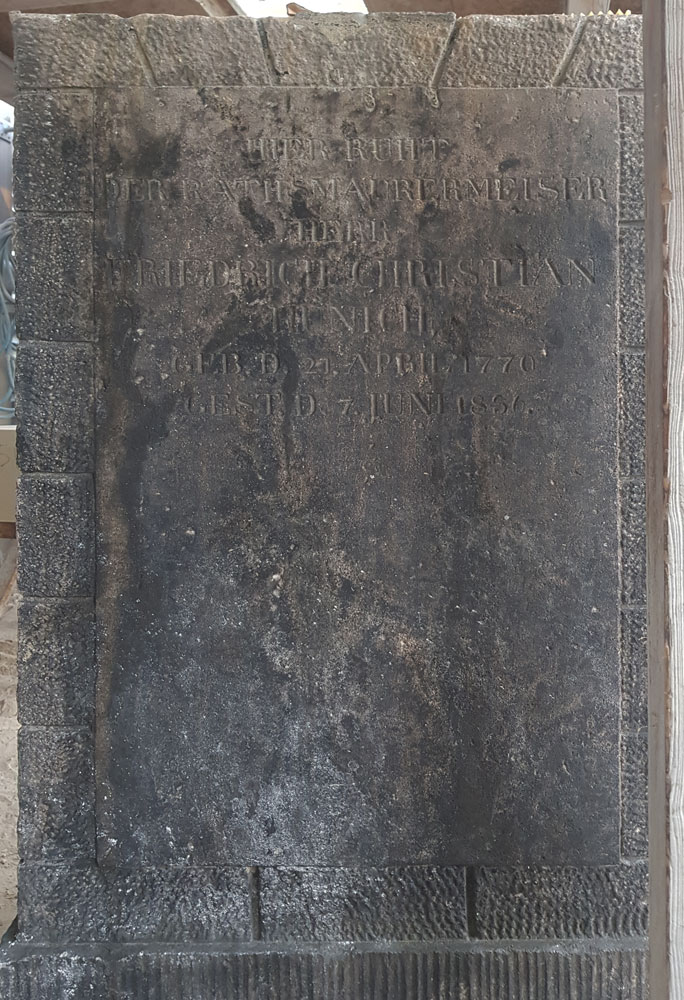 HIER RUHT
DER RATHSMAURERMEISER
HERR
FRIEDRICH CHRISTIAN
GEB. D. 21. APRIL 1770
GEST. D. 7. JUNI